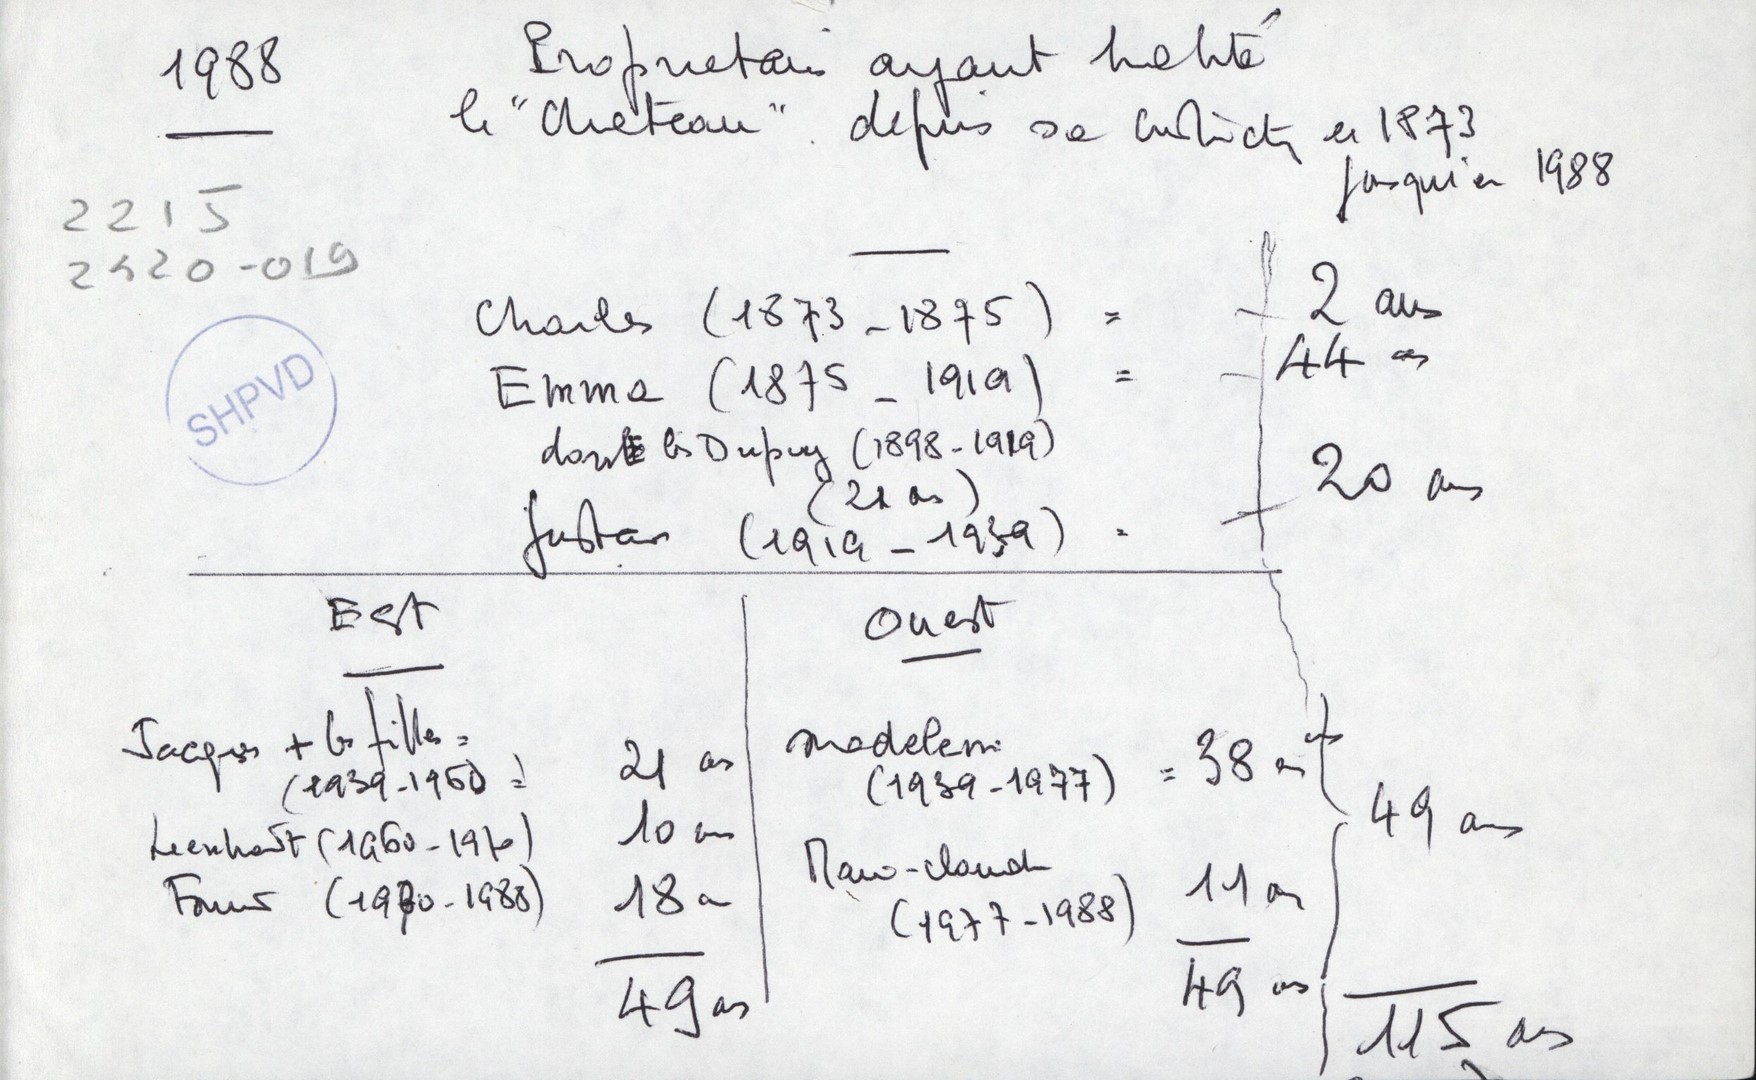 1988
Propriétaires ayant habité
le "Château" depuis sa constructn en 1873
jusqu'en 1988
2215
2420-019
SHPVD
Charles (1873-1875) = 2 ans
Emma (1875-1919) = 44 ans
dont les Dupuy (1898-1919)
(21 ans)
Gustave (1919-1939) = 20 ans
Est
Ouest
Jacques + les filles =
(1939-1960) = 21 ans
Leenhardt (1960-1970) 10 ans
(1970-1988) 18 a
49 ans
Madeleine
(1939-1977) = 38 ans
Marie-Claude
(1977-1988) 11 ans
49 ans
49 ans
115 ans